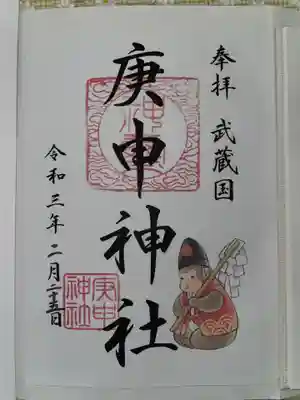 奉拝 武蔵国
庚申神社
令和三年二月二十五日
庚申
神社